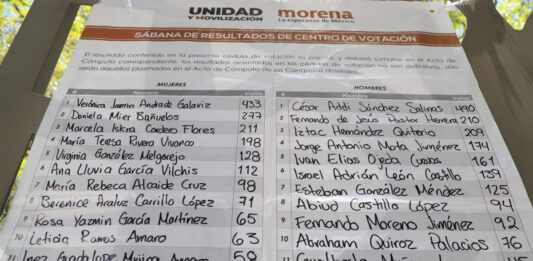 UNIDAD
Y MOVILIZACIÓN
morena
La esperanza de México
SÁBANA DE RESULTADOS DE CENTRO DE VOTACIÓN
El resultado contenido en la presente cédula de votación es parcial, y deberá sumarse en el Acta de
Cómputo correspondiente, los resultados asentados en las cédulas de votación no son definitivos, sólo
serán aquellos plasmados en el Acta de Cómputo de los Congresos distritales.
MUJERES
# Nombre Votos
1 Verónica Jazmin Andrade Galaviz 433
2 Daniela Mier Bañuelos 277
3 Marcela Iskra Cordero Flores 211
4 María Teresa Rivera Vivanco 198
5 Virginia González Melgarejo 128
6 Ana Lluvia García Vilchis 112
7 María Rebeca Alcaide Cruz 98
8 Berenice Araluz Carrillo López 71
9 Rosa Yazmin García Martínez 65
10 Leticia Ramos Amaro 63
Inez Guadalupe Amaro 58
HOMBRES
# Nombre Votos
1 César Addi Sánchez Salinas 490
2 Fernando de Jesús Pastor Herrera 210
3 Iztac Hernández Quiterio 209
4 Jorge Antonio Mota Jiménez 174
5 Ivan Elias Ojeda 161
6 Israel Adrián León Castillo 139
7 Esteban González Méndez 125
8 Abiud Castillo López 94
9 Fernando Moreno Jiménez 92
10 Abraham Quiroz Palacios 76